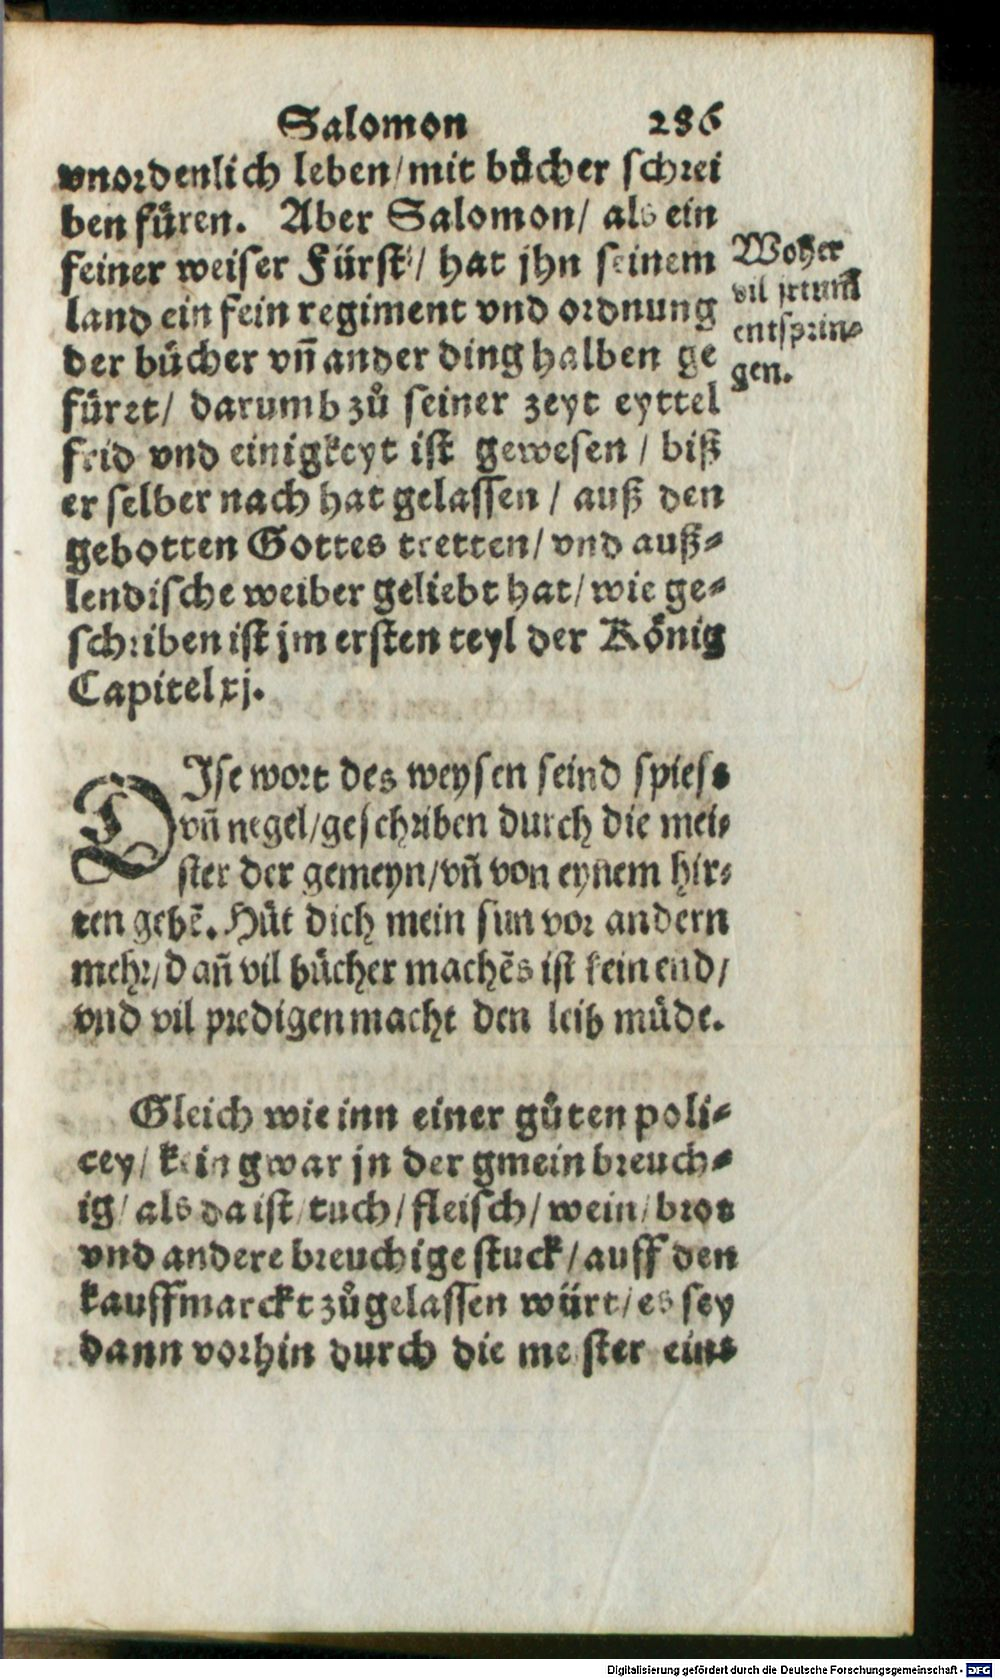 Salomon 286
vnordenlich leben/mit bücher schrei
ben füren. Aber Salomon/ als ein
feiner weiser Fürst/ hat jhn seinem
land ein fein regiment vnd ordnung
der bücher vñ ander ding halben ge
füret/ darumb zů seiner zeyt eyttel
frid vnd einigkeyt ist gewesen / biß
er selber nach hat gelassen / auß den
gebotten Gottes tretten/ vnd auß⸗
lendische weiber geliebt hat/ wie ge⸗
schriben ist jm ersten teyl der König
Capitel xj.
Woher
vil jrtum̃
entsprin⸗
gen.
DIse wort des weysen seind spiess
vñ negel/geschriben durch die mei⸗
ster der gemeyn/vñ von eynem hir⸗
ten gebẽ. Hüt dich mein sun vor andern
mehr/dañ vil bücher machẽs ist kein end/
vnd vil predigen macht den leib müde.
Gleich wie inn einer gůten poli⸗
cey/ kein gwar jn der gmein breuch⸗
ig/ als da ist/ tuch/ fleisch/ wein/ brot
vnd andere breuchige stuck/ auff den
kauffmarckt zůgelassen würt/ es sey
dann vorhin durch die meister eins
Digitalisierung gefördert durch die Deutsche Forschungsgemeinschaft - DFG